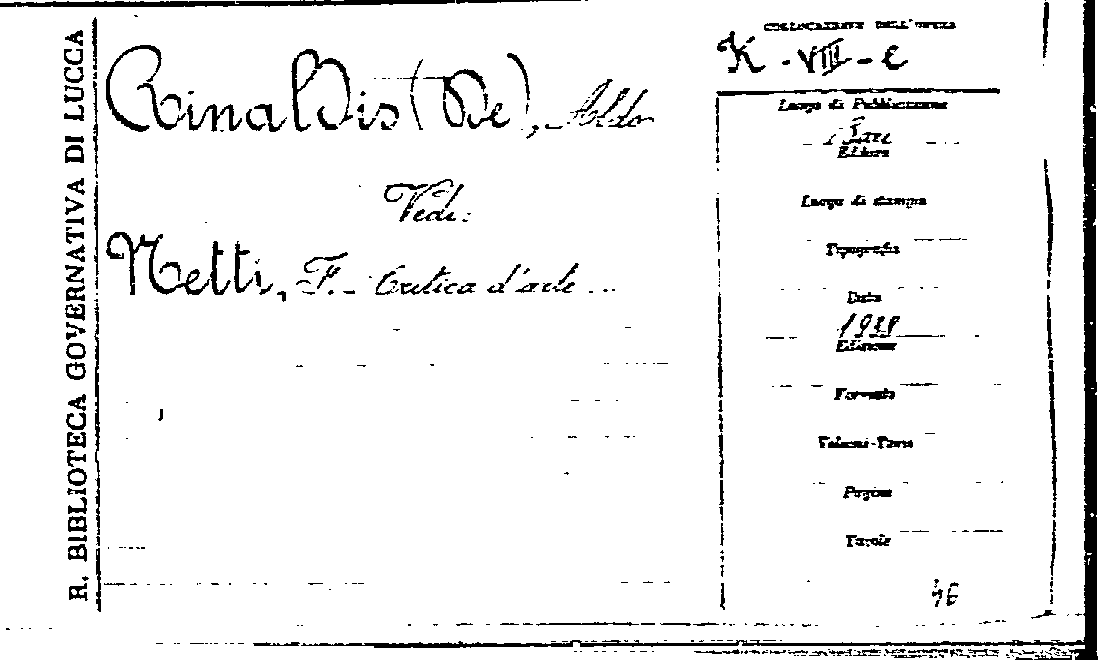 R. BIBLIOTECA GOVERNATIVA DI LUCCA
Rinaldis (De), Aldo
Vedi:
Netti, F. - Critica d'arte ...
COLLOCAZIONE DELL'OPERA
K - VIII - C
Luogo di Pubblicazione
Bari
Editore
Luogo di stampa
Tipografia
Data
1938
Edizione
Formato
Volumi-Parte
Pagine
Tavole
46